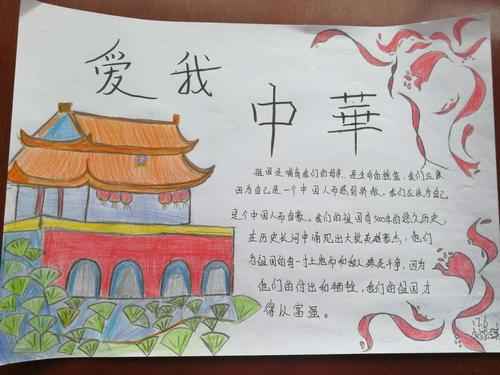 爱我
中華
祖国是哺育我们的母亲，是生命的摇篮，我们应该
因为自己是一个中国人而感到骄傲。我们应该为自己
是个中国人而自豪。我们的祖国有5000年的悠久历史，
在历史长河中涌现出大批英雄豪杰，他们
为祖国的每一寸土地而和敌人抛头斗争，因为
他们的付出和牺牲，我们的祖国才
得以富强。